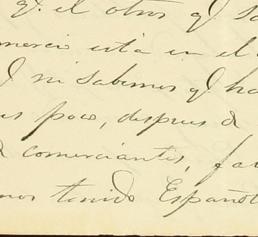 qe. el otro qe sa
mercio está en el
ni sabemos qe ha
es poco, despues de
comerciantes, fa
mos tenido Español